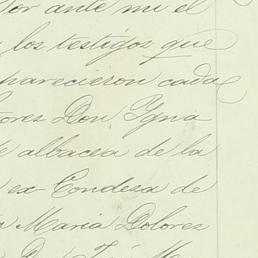 Por ante mi el
los testigos que
parecieron cada
tores Don Igna
albacea de la
ex Condesa de
Maria Dolores